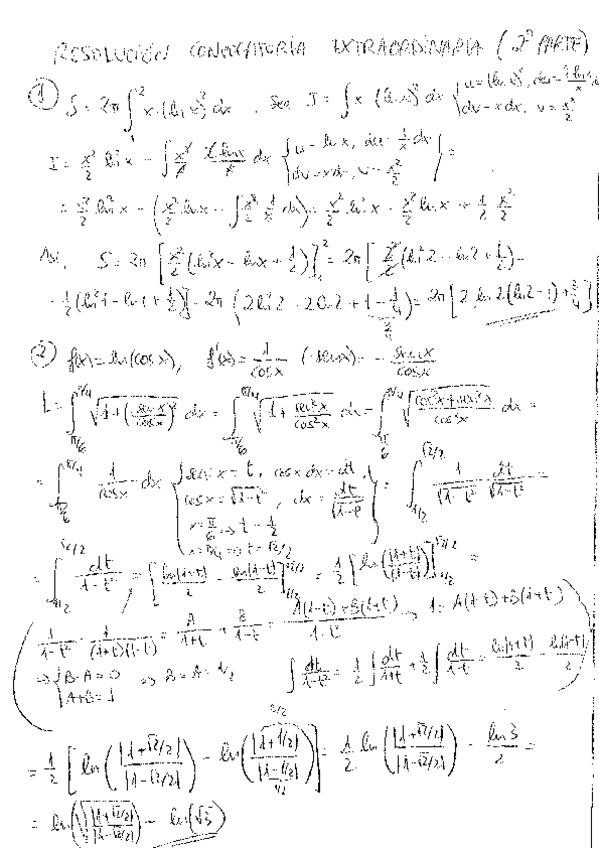 RESOLUCIÓN CONVOCATORIA EXTRAORDINARIA (2ª PARTE)
① S = 2π ∫₁² x·(ln x)² dx. Sea I = ∫ x (ln x)² dx { u = (ln x)², du = 2 ln x / x ; dv = x dx, v = x²/2
I = x²/2 ln²x − ∫ x²/2 · 2 ln x / x dx { u = ln x, du = 1/x dx ; dv = x dx, v = x²/2 } =
= x²/2 ln²x − (x²/2 ln x − ∫ x²/2 · 1/x dx) = x²/2 ln²x − x²/2 ln x + 1/2 x²/2
Así, S = 2π [x²/2 (ln²x − ln x + 1/2)]₁² = 2π [2²/2 (ln²2 − ln 2 + 1/2) −
− 1/2 (ln²1 − ln 1 + 1/2)] = 2π (2 ln²2 − 2 ln 2 + 1 − 1/4) = 2π [2 ln 2 (ln 2 − 1) + 3/4]
3/4
② f(x) = ln(cos x), f'(x) = 1/cos x (−sen x) = − sen x / cos x
L = ∫_{π/6}^{π/4} √(1 + (sen x / cos x)²) dx = ∫_{π/6}^{π/4} √(1 + sen²x / cos²x) dx = ∫_{π/6}^{π/4} √((cos²x + sen²x) / cos²x) dx =
= ∫_{π/6}^{π/4} 1/cos x dx { sen x = t, cos x dx = dt ; cos x = √(1−t²), dx = dt/√(1−t²) ; x = π/6 → t = 1/2 ; x = π/4 ⇒ t = √2/2 } = ∫_{1/2}^{√2/2} 1/√(1−t²) dt/√(1−t²) =
= ∫_{1/2}^{√2/2} dt/(1−t²) = [ln|1+t|/2 − ln|1−t|/2]_{1/2}^{√2/2} = 1/2 [ln(|1+t|/|1−t|)]_{1/2}^{√2/2} =
1/(1−t²) = 1/((1+t)(1−t)) = A/(1+t) + B/(1−t) = (A(1−t) + B(1+t))/(1−t²) → 1 = A(1−t) + B(1+t)
⇒ { B−A = 0 ; A+B = 1 ⇒ B = A = 1/2 ∫ dt/(1−t²) = 1/2 ∫ dt/(1+t) + 1/2 ∫ dt/(1−t) = ln|1+t|/2 − ln|1−t|/2
3/2
= 1/2 [ln(|1+√2/2| / |1−√2/2|) − ln(|1+1/2| / |1−1/2|)] = 1/2 ln(|1+√2/2| / |1−√2/2|) − ln 3 / 2 =
1/2
= ln(√(|1+√2/2| / |1−√2/2|)) − ln(√3)